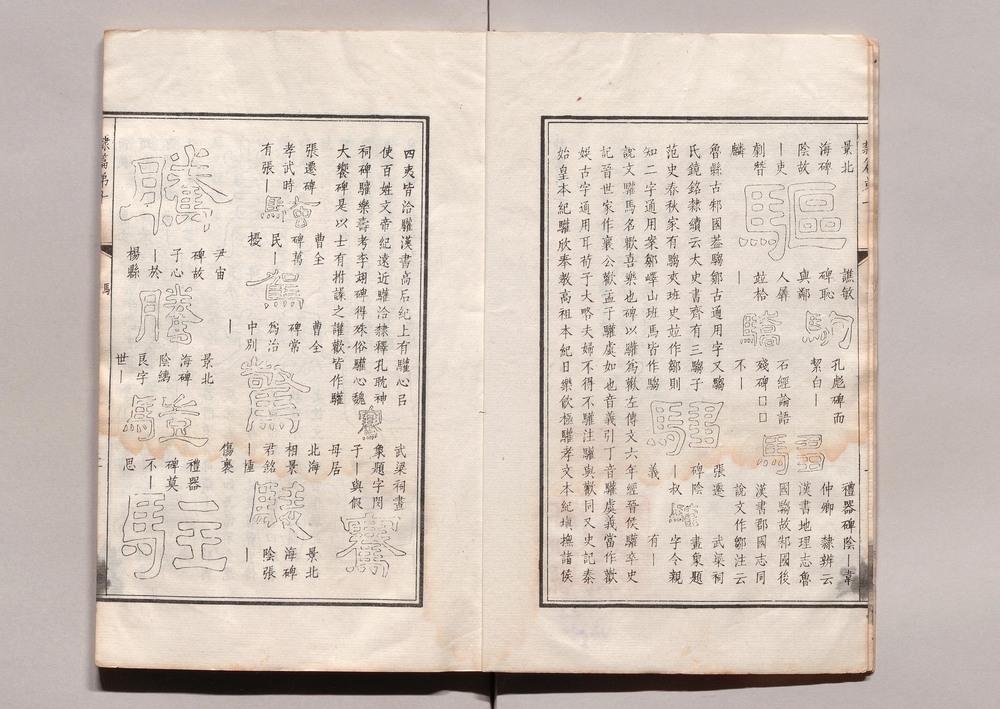 景北
海碑
陰故
｜吏
劇
麟
驅
譙敏
碑恥
與鄰
人羼
竝
｜
駒
驕
孔彪碑而
絜白｜
石經論語
殘碑□□
不｜
騶
禮器碑陰｜韋
仲卿 隸辨云
漢書地理志魯
國騶故邾國後
漢書郡國志同
說文作鄒注云
魯縣古邾國葢騶鄒古通用字又騶
氏鏡銘隸續云太史書齊有三騶子
范史春秋家有騶夾班史竝作鄒則
知二字通用案鄒嶧山班馬皆作騶
張遷
碑陰
｜叔
義
驩
武梁祠
畫象題
字令親
有｜
說文驩馬名歡喜樂也碑以驩爲歡左傳文六年經晉侯驩卒史
記晉世家作襄公歡孟子驩虞如也音義引丁音驩虞義當作歡
娛古字通用耳荀子大略夫婦不得不驩注驩與歡同又史記秦
始皇本紀驩欣奉教高祖本紀日樂飲極驩孝文本紀塡撫諸侯
四夷皆洽驩漢書高后紀上有驩心㠯
使百姓文帝紀遠近驩洽隸釋孔耽神
祠碑驩樂壽考李翊碑得殊俗驩心魏
大饗碑是以士有拊譟之讙歡皆作驩
騫
武梁祠畫
象題字閔
子｜與假
母居
騫
張遷碑
孝武時
有張｜
曹全
碑萬
民｜
擾
駕
曹全
碑常
爲治
中別
｜
驚
北海
相景
君銘
｜慟
傷褱
景北
海碑
陰張
｜
騰
尹宙
碑故
子心
｜於
楊縣
騰
景北
海碑
陰
民字
世｜
禮器
碑莫
不｜
思
隸篇弟十
馬